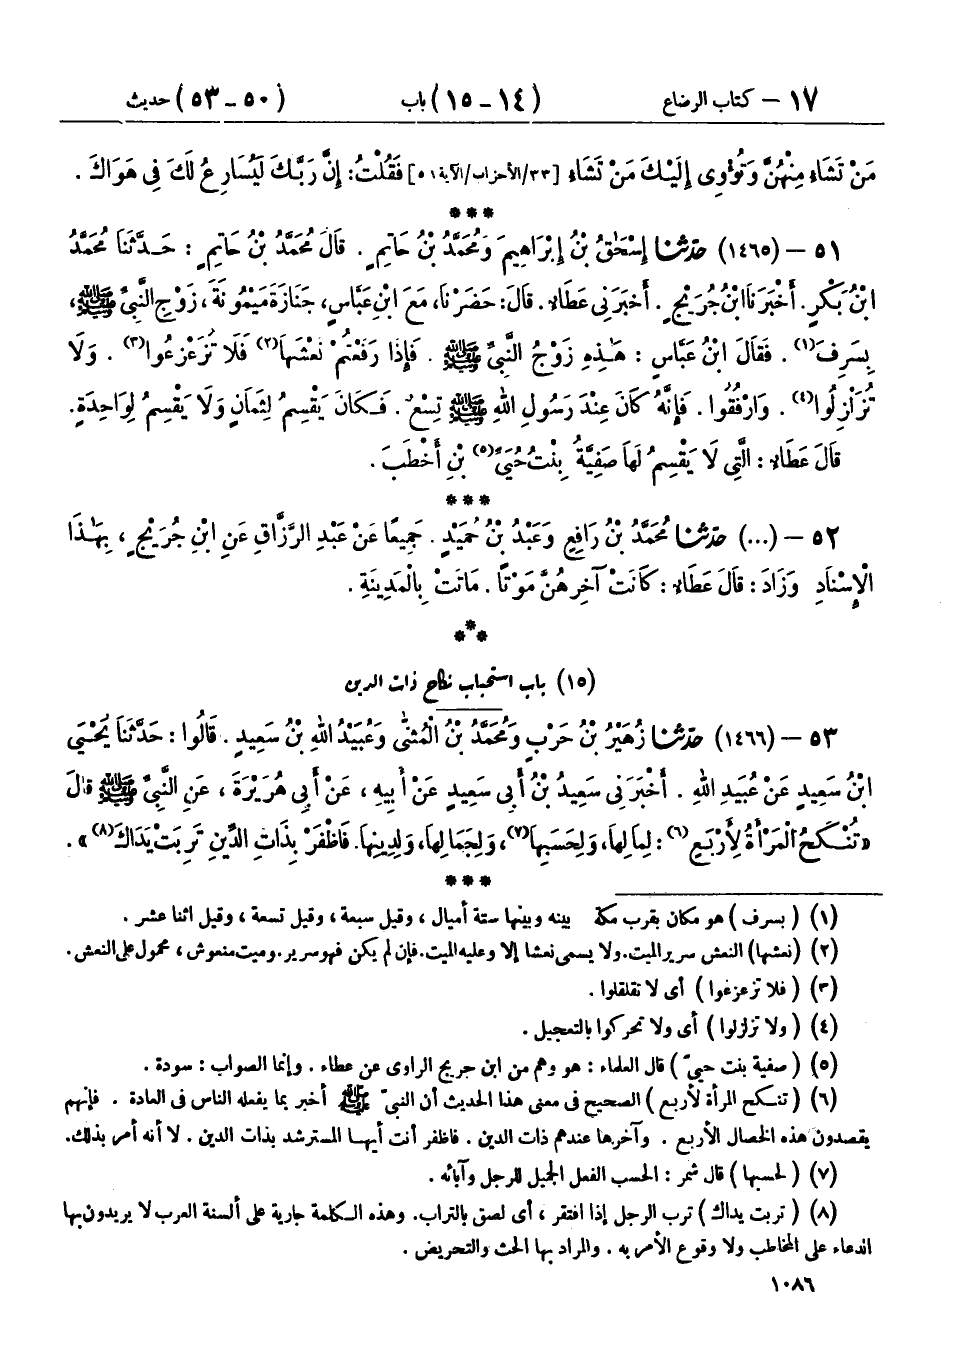 ١٧ - كتاب الرضاع (١٤ - ١٥) باب (٥٠ - ٥٣) حديث
مَنْ تَشَاءُ مِنْهُنَّ وَتُؤْوِى إِلَيْكَ مَنْ تَشَاءُ [٣٣/الأحزاب/الآية ٥١] فَقُلْتُ: إِنَّ رَبَّكَ لَيُسَارِعُ لَكَ فِى هَوَاكَ .
***
٥١ - (١٤٦٥) حدّثنا إِسْحَٰقُ بْنُ إِبْرَاهِيمَ وَمُحَمَّدُ بْنُ حَاتِمٍ . قَالَ مُحَمَّدُ بْنُ حَاتِمٍ : حَدَّثَنَا مُحَمَّدُ
ابْنُ بَكْرٍ. أَخْبَرَنَا ابْنُ جُرَيْجٍ. أَخْبَرَنِى عَطَاءٌ. قَالَ: حَضَرْنَا، مَعَ ابْنِ عَبَّاسٍ، جَنَازَةَ مَيْمُونَةَ، زَوْجِ النَّبِيِّ ﷺ،
بِسَرِفَ(١) . فَقَالَ ابْنُ عَبَّاسٍ : هَٰذِهِ زَوْجُ النَّبِيِّ ﷺ . فَإِذَا رَفَعْتُمْ نَعْشَهَا(٢) فَلَا تُزَعْزِعُوا(٣) . وَلَا
تُزَلْزِلُوا(٤) . وَارْفُقُوا . فَإِنَّهُ كَانَ عِنْدَ رَسُولِ اللهِ ﷺ تِسْعٌ . فَكَانَ يَقْسِمُ لِثَمَانٍ وَلَا يَقْسِمُ لِوَاحِدَةٍ.
قَالَ عَطَاءٌ : الَّتِى لَا يَقْسِمُ لَهَا صَفِيَّةُ بِنْتُ حُيَيِّ(٥) بْنِ أَخْطَبَ .
***
٥٢ - (...) حدّثنا مُحَمَّدُ بْنُ رَافِعٍ وَعَبْدُ بْنُ حُمَيْدٍ . جَمِيعًا عَنْ عَبْدِ الرَّزَّاقِ عَنِ ابْنِ جُرَيْجٍ ، بِهَٰذَا
الْإِسْنَادِ وَزَادَ : قَالَ عَطَاءٌ : كَانَتْ آخِرَهُنَّ مَوْتًا . مَاتَتْ بِالْمَدِينَةِ .
***
(١٥) باب استحباب نكاح ذات الدين
٥٣ - (١٤٦٦) حدّثنا زُهَيْرُ بْنُ حَرْبٍ وَمُحَمَّدُ بْنُ الْمُثَنَّىٰ وَعُبَيْدُ اللهِ بْنُ سَعِيدٍ . قَالُوا : حَدَّثَنَا يَحْيَىٰ
ابْنُ سَعِيدٍ عَنْ عُبَيْدِ اللهِ . أَخْبَرَنِى سَعِيدُ بْنُ أَبِى سَعِيدٍ عَنْ أَبِيهِ ، عَنْ أَبِى هُرَيْرَةَ ، عَنِ النَّبِيِّ ﷺ قَالَ
« تُنْكَحُ الْمَرْأَةُ لِأَرْبَعٍ(٦) : لِمَالِهَا، وَلِحَسَبِهَا(٧)، وَلِجَمَالِهَا، وَلِدِينِهَا. فَاظْفَرْ بِذَاتِ الدِّينِ تَرِبَتْ يَدَاكَ(٨)» .
***
(١) ( بسرف ) هو مكان بقرب مكة بينه وبينها ستة أميال ، وقيل سبعة ، وقيل تسعة ، وقيل اثنا عشر .
(٢) (نعشها) النعش سرير الميت. ولا يسمى نعشا إلا وعليه الميت. فإن لم يكن فهو سرير. وميت منعوش ، محمول على النعش .
(٣) ( فلا تزعزعوا ) أى لا تقلقلوا .
(٤) ( ولا تزلزلوا ) أى ولا تحركوا بالتعجيل .
(٥) ( صفية بنت حييّ ) قال العلماء : هو وهم من ابن جريج الراوى عن عطاء . وإنما الصواب : سودة .
(٦) ( تنكح المرأة لأربع ) الصحيح فى معنى هذا الحديث أن النبيّ ﷺ أخبر بما يفعله الناس فى العادة . فإنهم
يقصدون هذه الخصال الأربع . وآخرها عندهم ذات الدين . فاظفر أنت أيها المسترشد بذات الدين . لا أنه أمر بذلك.
(٧) ( لحسبها ) قال شمر : الحسب الفعل الجميل للرجل وآبائه .
(٨) ( تربت يداك ) ترب الرجل إذا افتقر ، أى لصق بالتراب. وهذه الكلمة جارية على ألسنة العرب لا يريدون بها
الدعاء على المخاطب ولا وقوع الأمر به . والمراد بها الحث والتحريض .
١٠٨٦